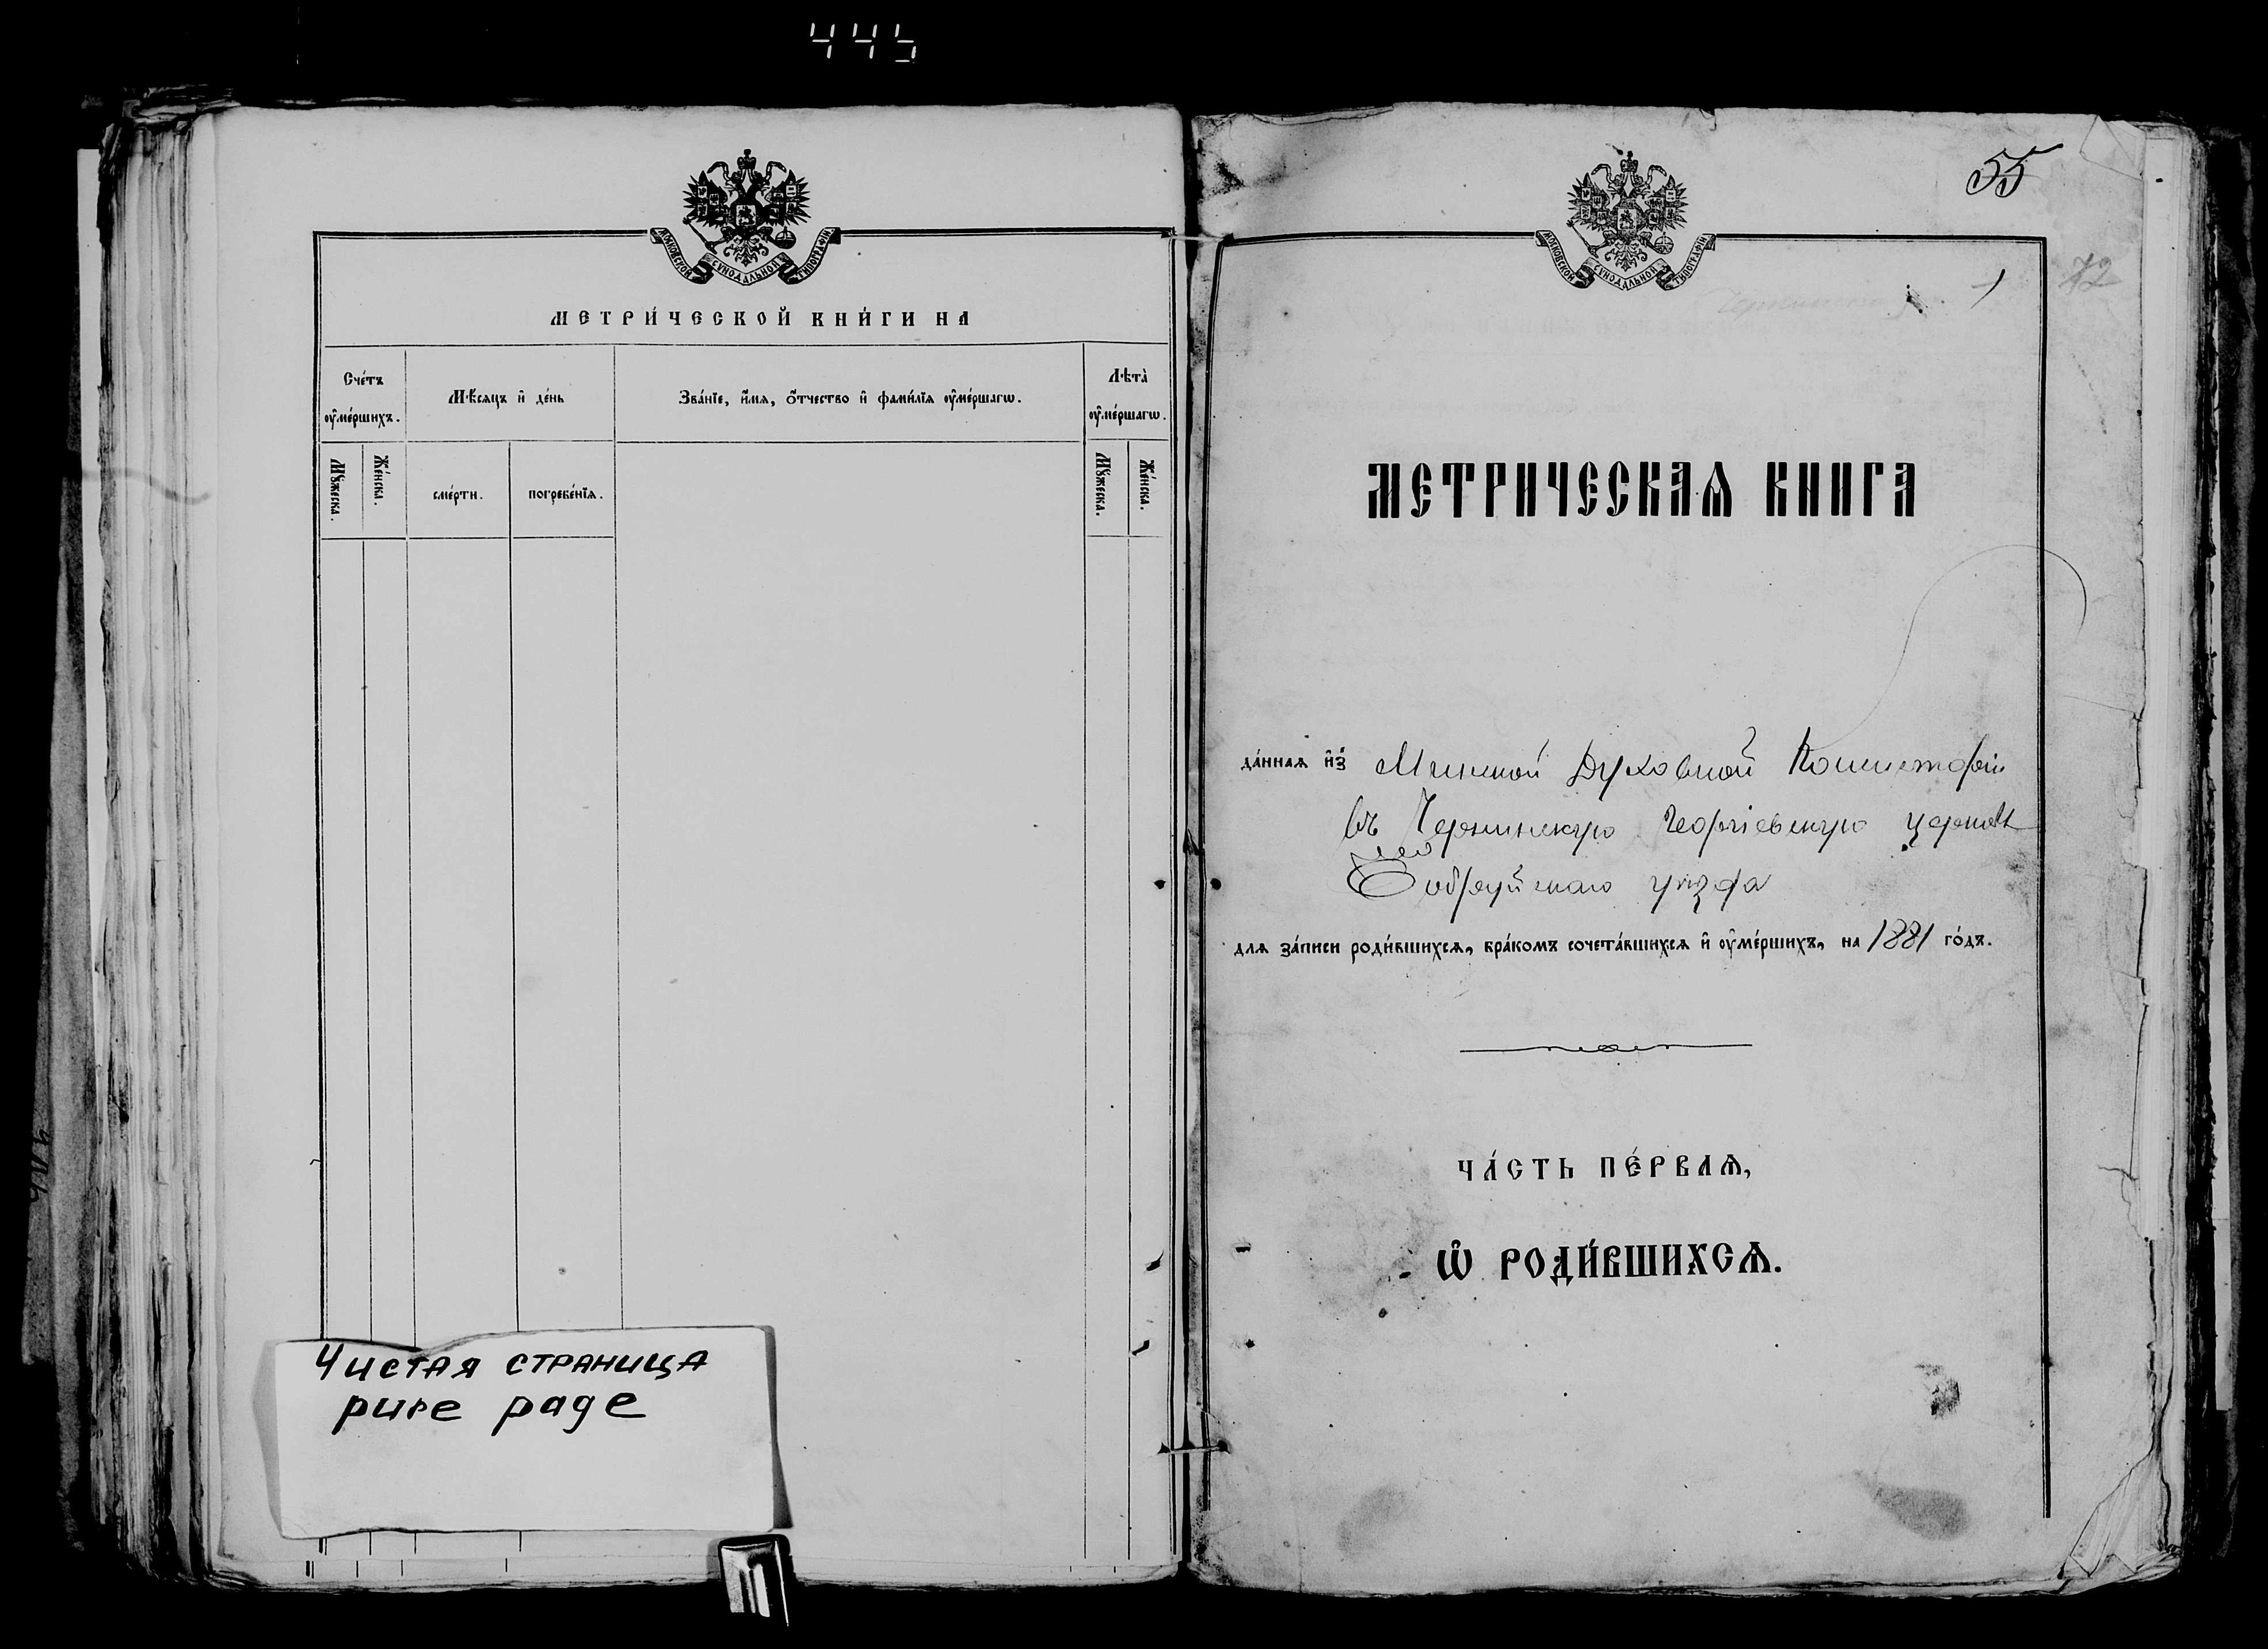 445
МОСКОВСКОЙ СУНОДАЛЬНОЙ ТИПОГРАФІИ
МЕТРИ́ЧЕСКОЙ КНИ́ГИ НА
Сче́тъ ᲂу҆ме́ршихъ.
Мѣ́сяцъ и҆ де́нь
Зва́нїе, и҆́мѧ, ѻ҆́тчество и҆ фами́лїѧ ᲂу҆ме́ршагѡ.
Лѣта̀ ᲂу҆ме́ршагѡ.
Мꙋ́жеска.
Же́нска.
сме́рти.
погребе́нїѧ.
Мꙋ́жеска.
Же́нска.
Чистая страница
pure page
55
МОСКОВСКОЙ СУНОДАЛЬНОЙ ТИПОГРАФІИ
1
72
МЕТРИЧЕСКАѦ КНИГА
да́ннаѧ и҆з̾ Минской Духовной Консисторіи
въ Чернинскую Георгіевскую церковь
Бобруйскаго уѣзда
длѧ за́писи роди́вшихсѧ, бра́комъ сочета́вшихсѧ и҆ ᲂу҆ме́ршихъ, на 1881 го́дъ.
ЧА́СТЬ ПЕ́РВАѦ,
Ѡ҆ РОДИ́ВШИХСѦ.